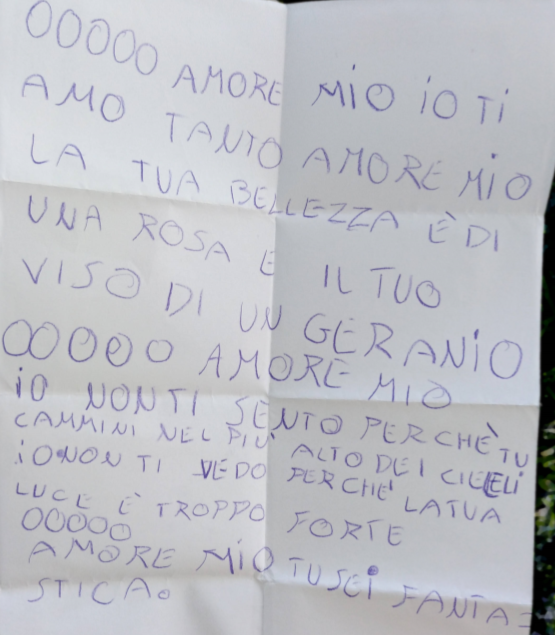 OOOOO AMORE MIO IO TI
AMO TANTO AMORE MIO
LA TUA BELLEZZA È DI
UNA ROSA E IL TUO
VISO DI UN GERANIO
OOOOO AMORE MIO
IO NON TI SENTO PERCHÈ TU
CAMMINI NEL PIÙ ALTO DEI CIEELI
IO NON TI VEDO PERCHE' LA TUA
LUCE È TROPPO FORTE
OOOOO
AMORE MIO TU SEI FANTA=
STICA.